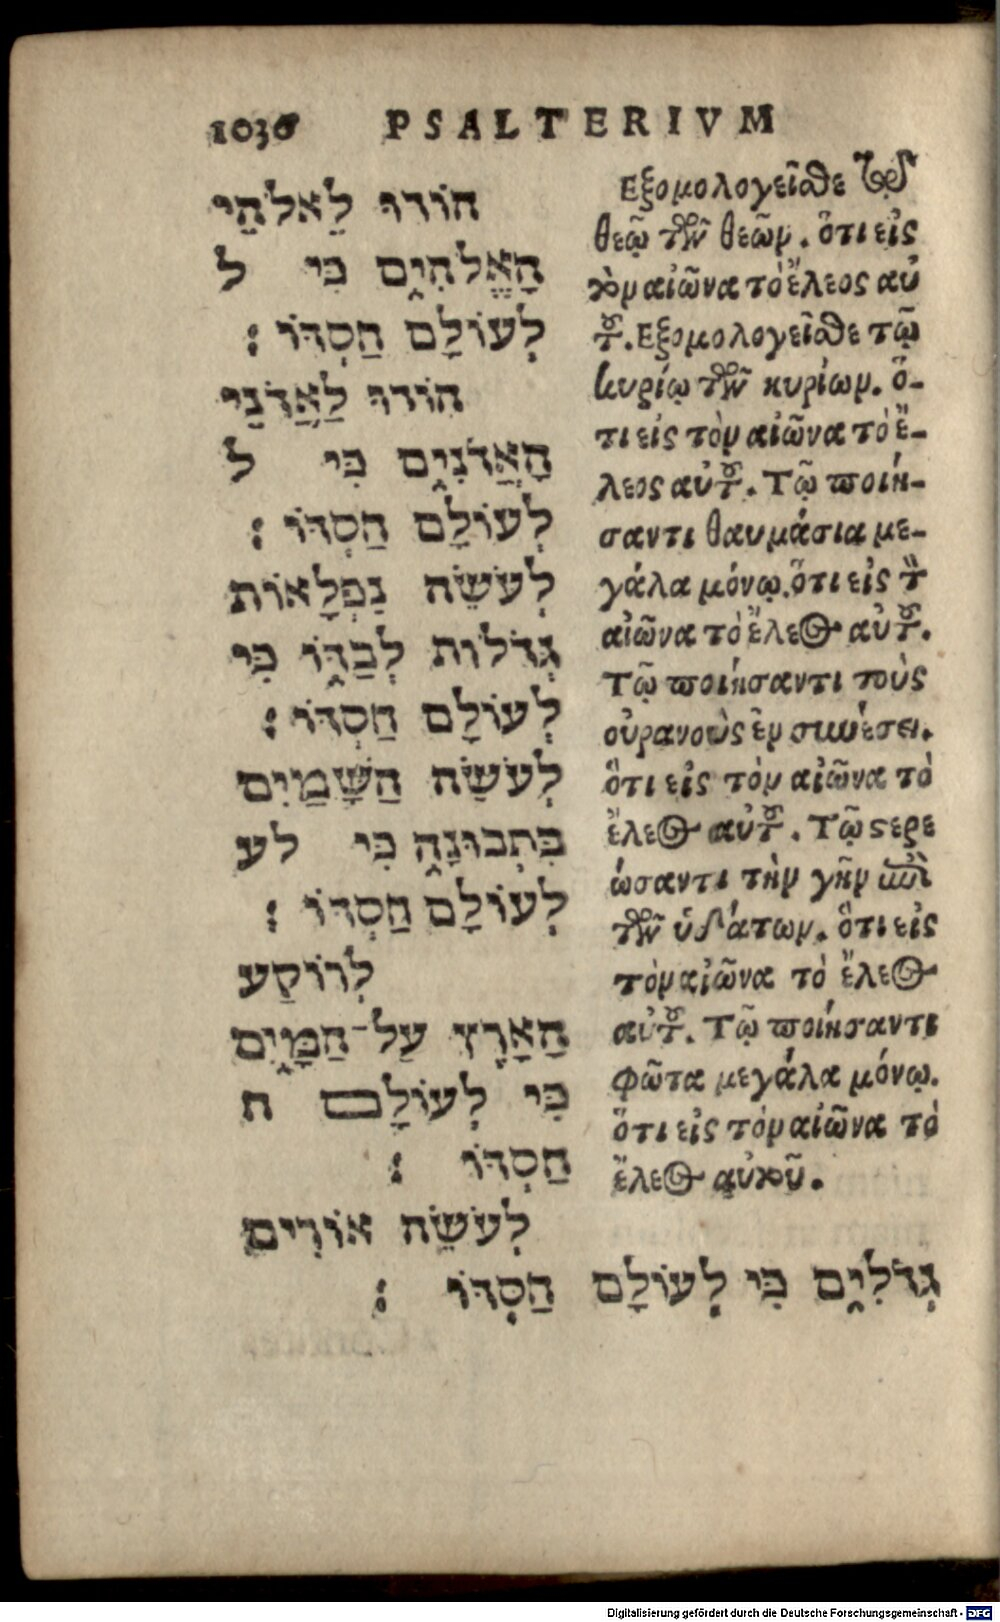 1036 PSALTERIVM
הוֹדוּ לֵאלֹהֵי
הָאֱלֹהִים כִּי ל
לְעוֹלָם חַסְדּוֹ :
הוֹדוּ לַאֲדֹנֵי
הָאֲדֹנִים כִּי ל
לְעוֹלָם חַסְדּוֹ :
לְעֹשֵׂה נִפְלָאוֹת
גְדֹלוֹת לְבַדּוֹ כִּי
לְעוֹלָם חַסְדּוֹ :
לְעֹשֵׂה הַשָּׁמַיִם
בִּתְבוּנָה כִּי לע
לְעוֹלָם חַסְדּוֹ :
לְרוֹקַע
הָאָרֶץ עַל־הַמָּיִם
כִּי לְעוֹלָם ח
חַסְדּוֹ :
לְעֹשֵׂה אוֹרִים
גְדֹלִים כִּי לְעוֹלָם חַסְדּוֹ :
Εξομολογεῖσθε τῷ
θεῷ τῶν θεῶν. ὅτι εἰς
τὸν αἰῶνα τὸ ἔλεος αὐ
τοῦ. Εξομολογεῖσθε τῷ
κυρίῳ τῶν κυρίων. ὅ-
τι εἰς τὸν αἰῶνα τὸ ἔ-
λεος αὐτοῦ. Τῷ ποιή-
σαντι θαυμάσια με-
γάλα μόνῳ. ὅτι εἰς τὸν
αἰῶνα τὸ ἔλεος αὐτοῦ.
Τῷ ποιήσαντι τοὺς
οὐρανοὺς ἐν συνέσει.
ὅτι εἰς τὸν αἰῶνα τὸ
ἔλεος αὐτοῦ. Τῷ στερε
ώσαντι τὴν γῆν ἐπὶ
τῶν ὑδάτων. ὅτι εἰς
τὸν αἰῶνα τὸ ἔλεος
αὐτοῦ. Τῷ ποιήσαντι
φῶτα μεγάλα μόνῳ.
ὅτι εἰς τὸν αἰῶνα τὸ
ἔλεος αὐτοῦ.
Digitalisierung gefördert durch die Deutsche Forschungsgemeinschaft - DFG